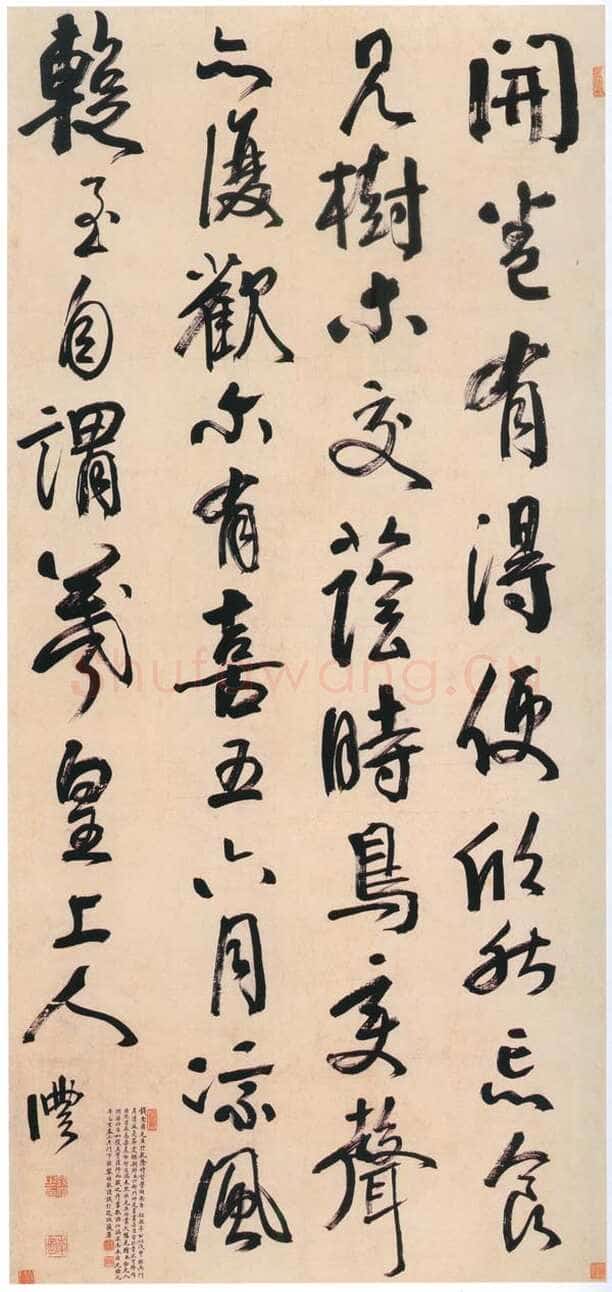 開卷有得便欣然忘食
見樹木交蔭時鳥變聲
亦復歡尔有喜五六月涼風
暫至自謂羲皇上人
灃
shufawang.cn